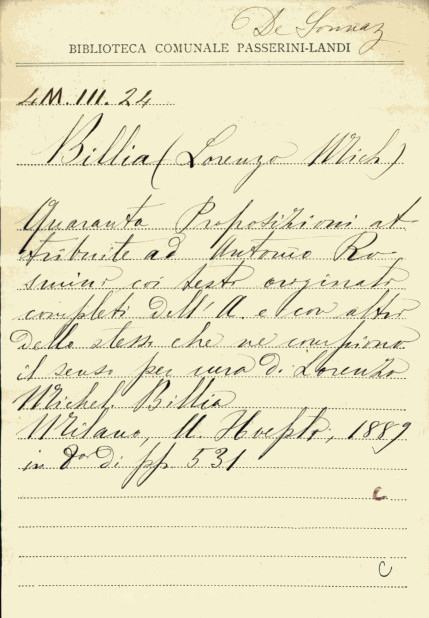 De Sonnaz
BIBLIOTECA COMUNALE PASSERINI-LANDI
4M.III.24
Billia (Lorenzo Mich)
Quaranta Proposizioni at
tribuite ad Antonio Ro-
smini coi testi originali
completi dell'A. e con altri
dello stesso che ne compiono
il senso per cura di Lorenzo
Michel. Billia
Milano, U. Hoepli, 1889
in 8o di pp. 531
C
C